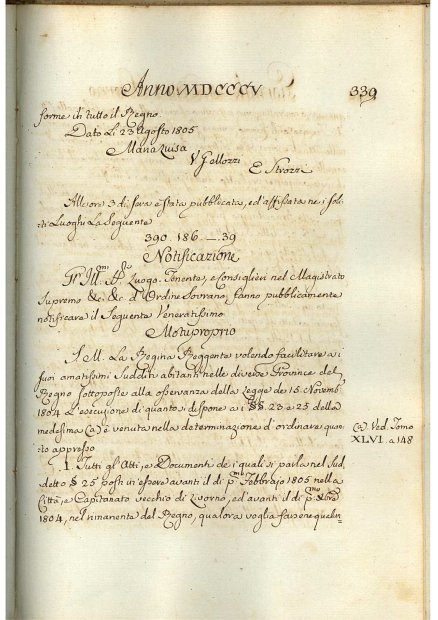 Anno MDCCCV. 339
forme in tutto il Regno.
Dato Li 23 Agosto 1805
Maria Luisa
V Gellozzi
E Strozzi
All'ore 3 di sera è stata pubblicata, ed'affissata ne i soli
ti Luoghi La Seguente
390. 186. _. 39
Notificazione
Gl' Ill.mi SS.ri Luogo Tenente, e Consiglieri nel Magistrato
Supremo &c. &c. d'Ordine Sovrano, fanno pubblicamente
notificare il Seguente Veneratissimo
Motuproprio
S. M. La Regina Reggente volendo facilitare a i
suoi amatissimi Sudditi abitanti nelle diverse Provincie del
Regno sottoposte alla osservanza della Legge de 15 Novemb.
1804 L'esecuzione di quanto dispone a i §§. 22 e 25 della
medesima (a) è venuta nella determinazione di ordinare quan
to appresso
(a) Ved. Tomo
XLVI. a 148
1. Tutti gl'Atti, e Documenti de i quali si parla nel Sud
detto § 25 posti in essere avanti il dì p.mo Febbrajo 1805 nella
Città, e Capitanato vecchio di Livorno, ed'avanti il dì p.mo Xbre
1804, nel rimanente del Regno, qualora voglia farsene qualun=